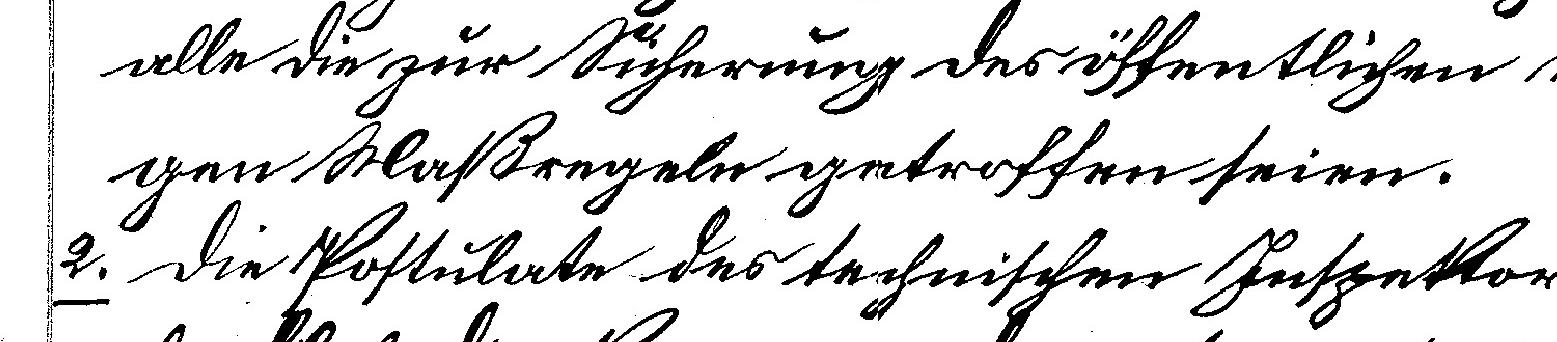 alle die zur Sicherung des öffentlichen
gen Maßregeln getroffen seien.
2. Die Postulate des technischen Inspektor